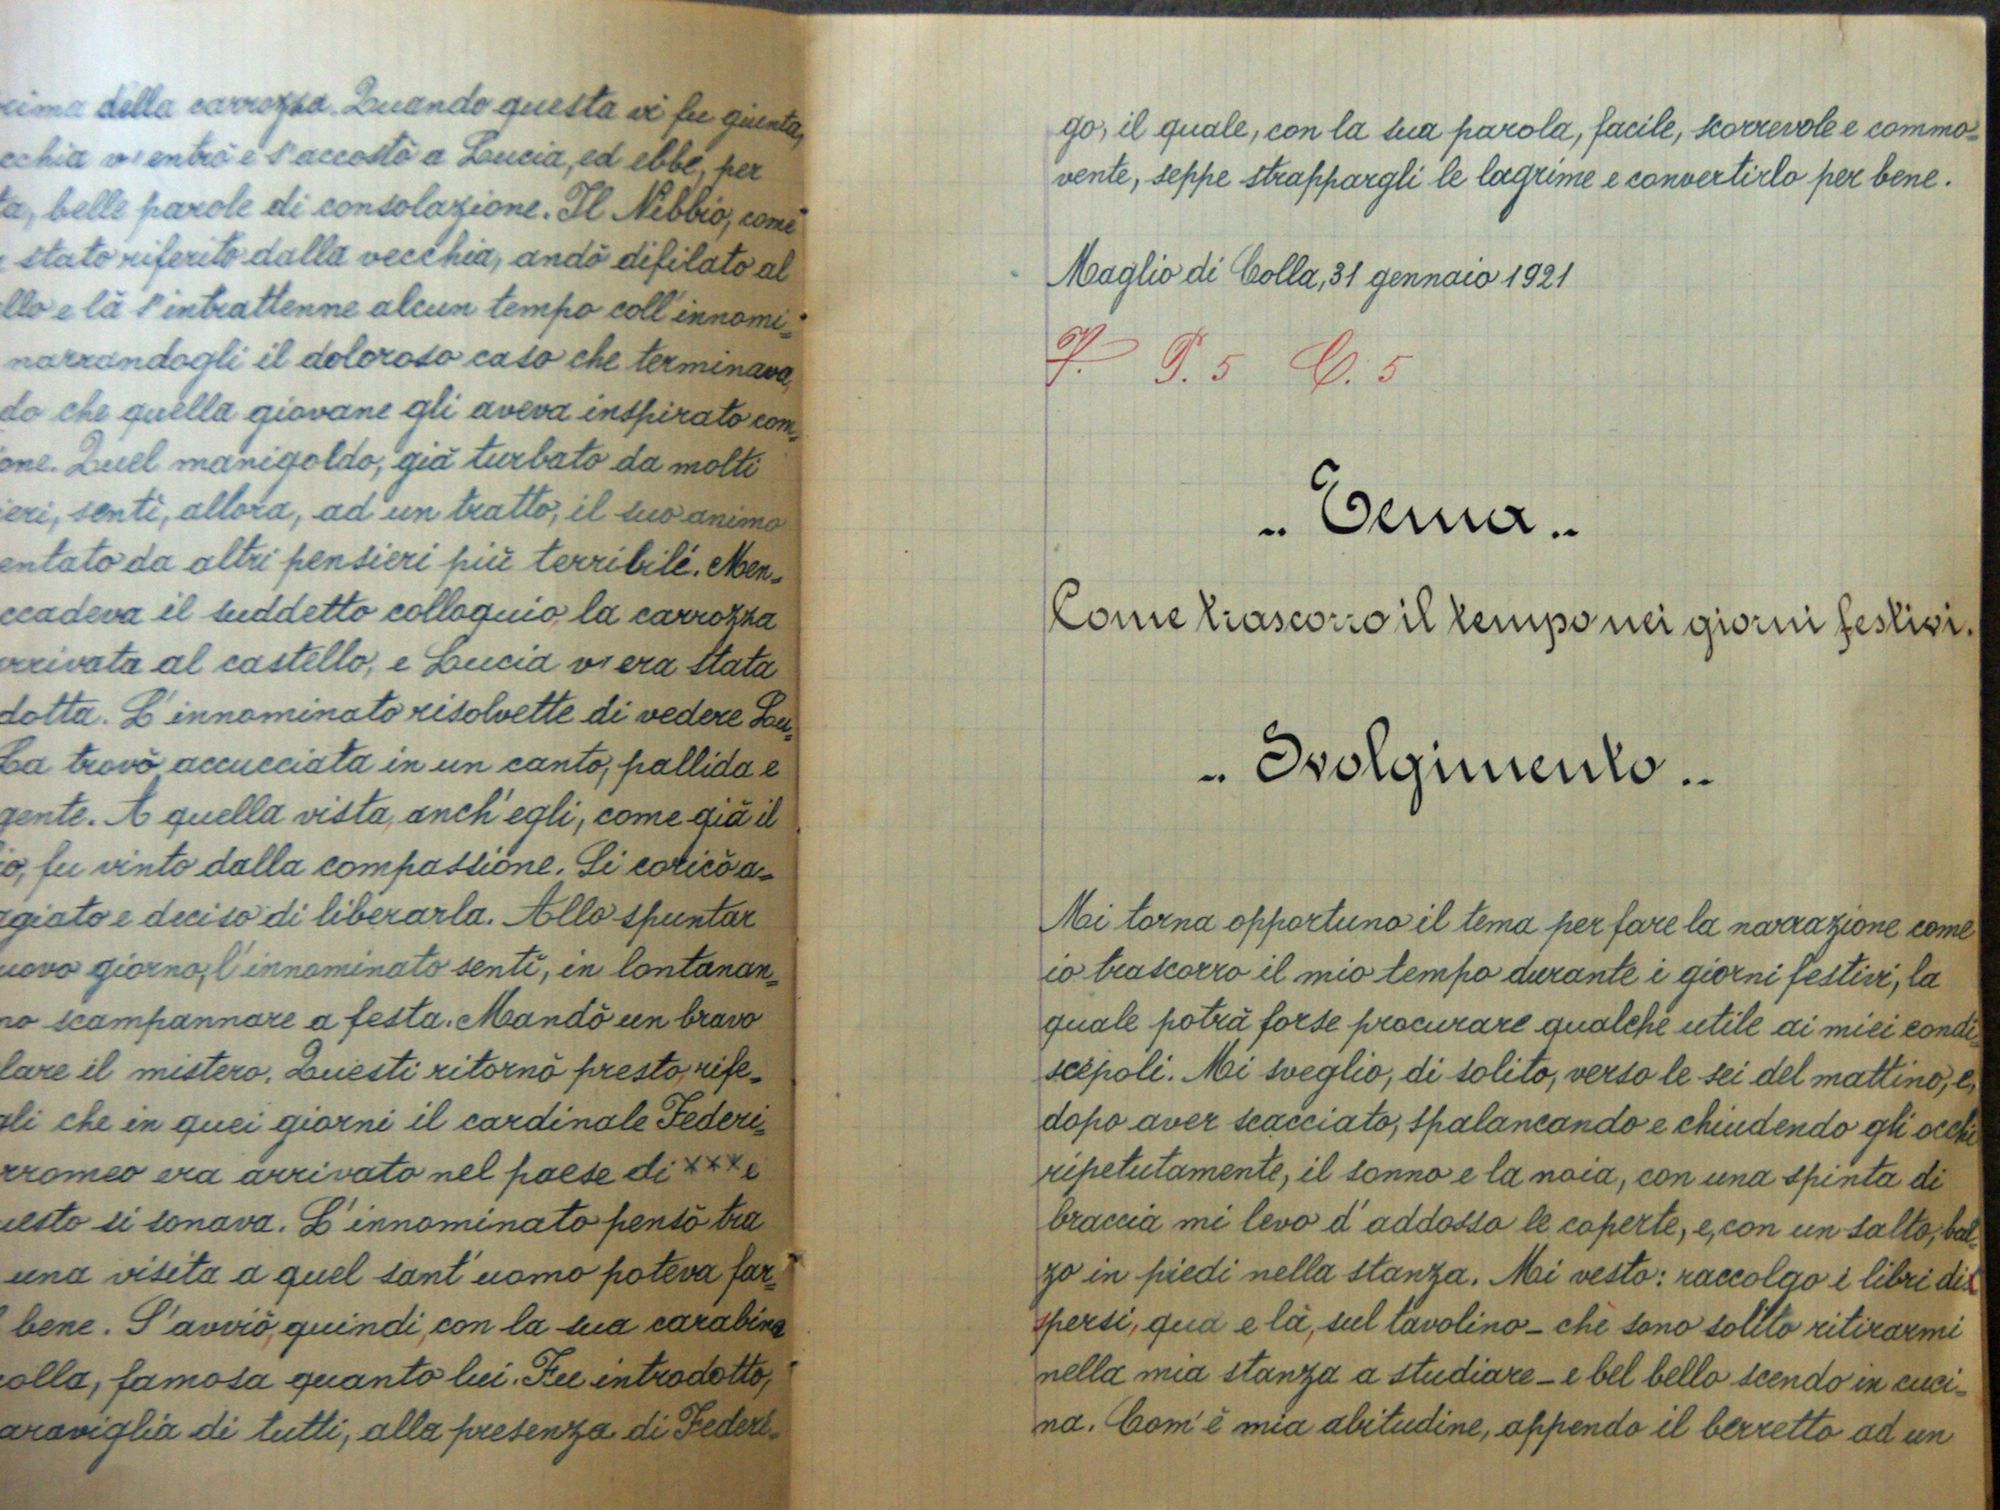 della carrozza. Quando questa vi fu giunta,
vi entrò e s'accostò a Lucia, ed ebbe, per
belle parole di consolazione. Il Nibbio, come
stato riferito dalla vecchia, andò difilato al
e là s'intrattenne alcun tempo coll'innomi=
narrandogli il doloroso caso che terminava,
che quella giovane gli aveva inspirato com=
Quel manigoldo, già turbato da molti
sentì, allora, ad un tratto, il suo animo
da altri pensieri più terribili. Men=
il suddetto colloquio, la carrozza
al castello, e Lucia vi era stata
L'innominato risolvette di vedere Lu=
La trovò accucciata in un canto, pallida e
A quella vista, anch'egli, come già il
fu vinto dalla compassione. Si coricò a=
e deciso di liberarla. Allo spuntar
giorno, l'innominato sentì, in lontanan=
scampannare a festa. Mandò un bravo
il mistero. Questi ritornò presto, rife=
che in quei giorni il cardinale Federi=
era arrivato nel paese di xxx e
si sonava. L'innominato pensò tra
una visita a quel sant'uomo poteva far=
bene. S'avviò, quindi, con la sua carabina
famosa quanto lui. Fu introdotto,
di tutti, alla presenza di Federi=
go, il quale, con la sua parola, facile, scorrevole e commo=
vente, seppe strappargli le lagrime e convertirlo per bene.
Maglio di Colla, 31 gennaio 1921
P. 5 C. 5
„ Tema „
Come trascorro il tempo nei giorni festivi.
„ Svolgimento „
Mi torna opportuno il tema per fare la narrazione come
io trascorro il mio tempo durante i giorni festivi, la
quale potrà forse procurare qualche utile ai miei condi=
scepoli. Mi sveglio, di solito, verso le sei del mattino, e,
dopo aver scacciato, spalancando e chiudendo gli occhi
ripetutamente, il sonno e la noia, con una spinta di
braccia mi levo d'addosso le coperte, e, con un salto, bal=
zo in piedi nella stanza. Mi vesto: raccolgo i libri dis
persi, qua e là, sul tavolino - chè sono solito ritirarmi
nella mia stanza a studiare - e bel bello scendo in cuci=
na. Com'è mia abitudine, appendo il berretto ad un